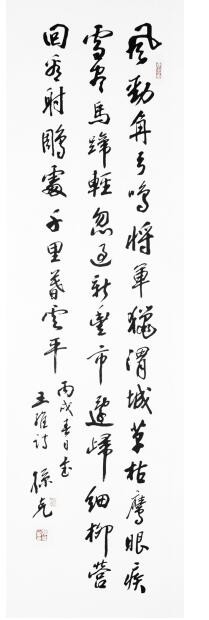 風勁角弓鳴將軍獵渭城草枯鷹眼疾
雪盡馬蹄輕忽過新豐市還歸細柳營
回看射鵰處千里暮雲平
丙戌春日書
王維詩 孫克